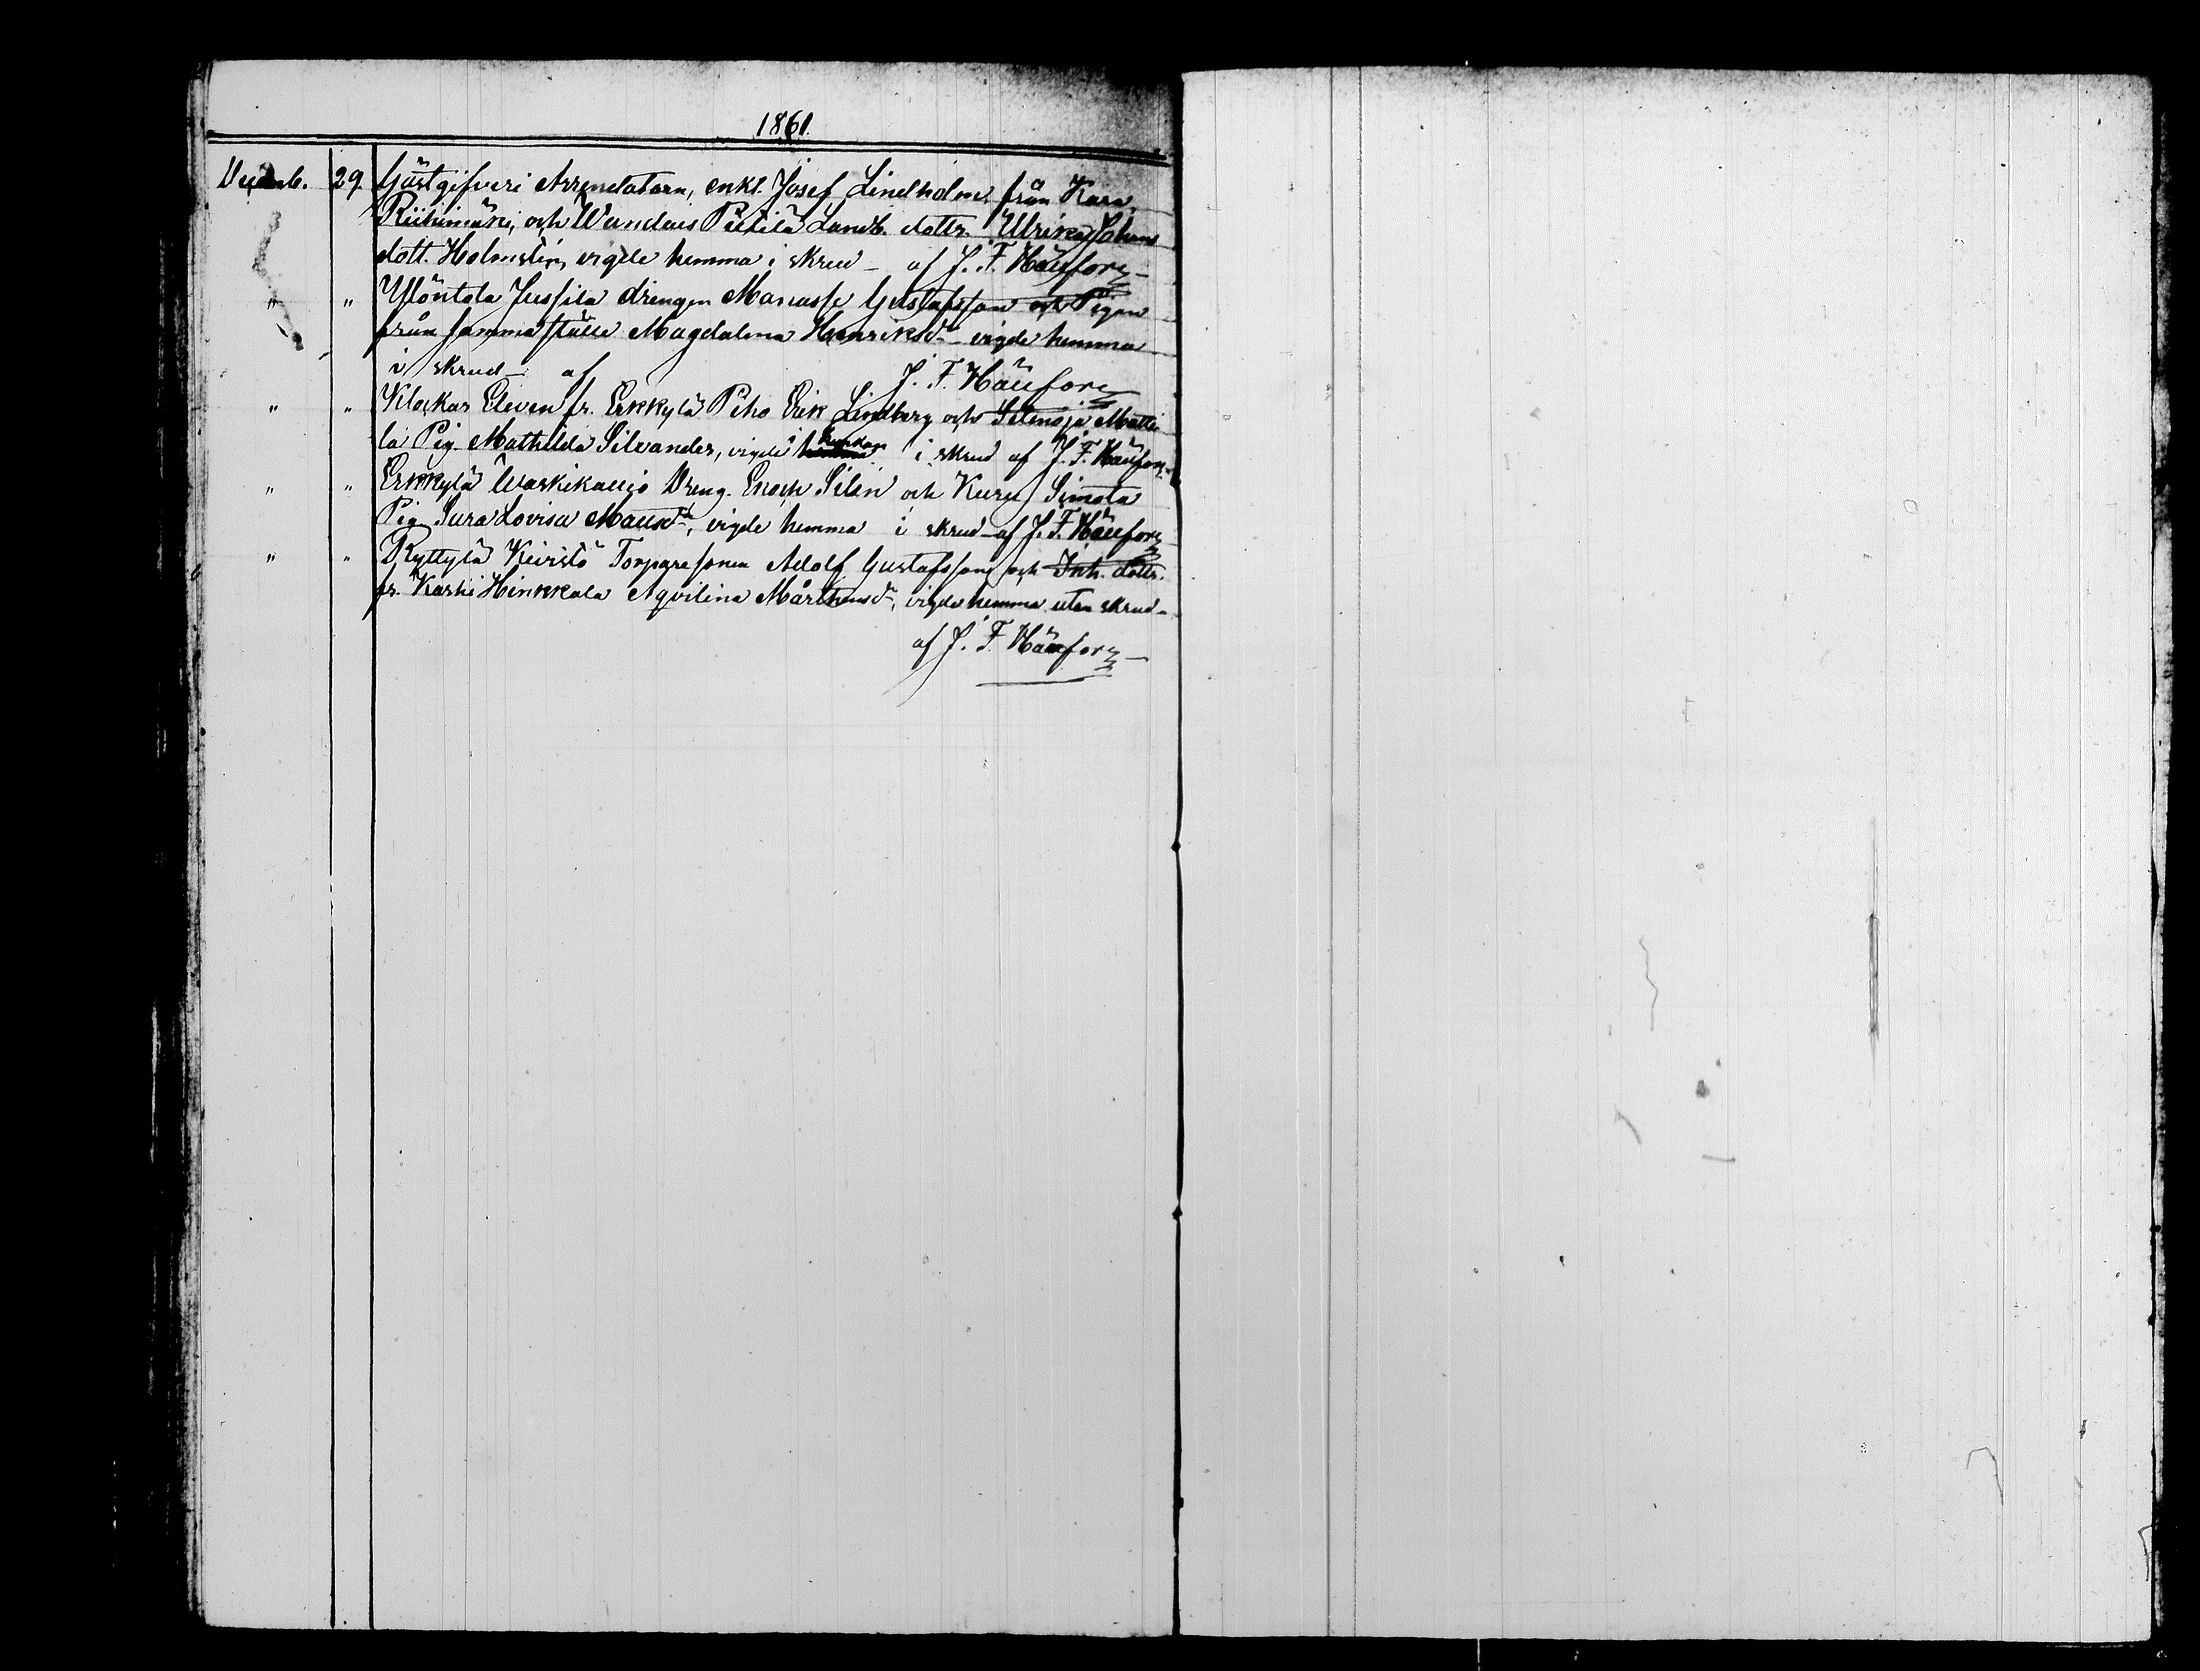 1861.
Decemb. 29. Gästgifveri Arrendatorn, enkl. Josef Lindholm, från Kara,
Riihimäki, och Wandais Pietilä Landb. dottr. Ulrika Johans
dott. Holmstén, vigde hemma i skrud – af J. F. Häufors –
" " Ylöntola Jussila drengen Manasse Gustafsson och Pigan
från samma ställe Magdalena Henriksdr – vigde hemma
i skrud – af J. F. Häufors
" " Klockar Eleven fr. Erkkylä Piho Erik Lindberg och Selänoja Matti
la Pig. Mathilda Silvander, vigde i kyrkan i skrud af J. F. Häufors
" " Erkkylä Waskikallio Dreng. Enoch Silén och Kuru Simola
Pig. Sura Lovisa Mausdr, vigde hemma i skrud – af J. F. Häufors
" " Ryttylä Kivistö Torparesonen Adolf Gustafsson och Inh. dottr.
fr. Karhi Hinkkala Aqvilina Mårthensdr, vigde hemma utan skrud –
af J. F. Häufors –